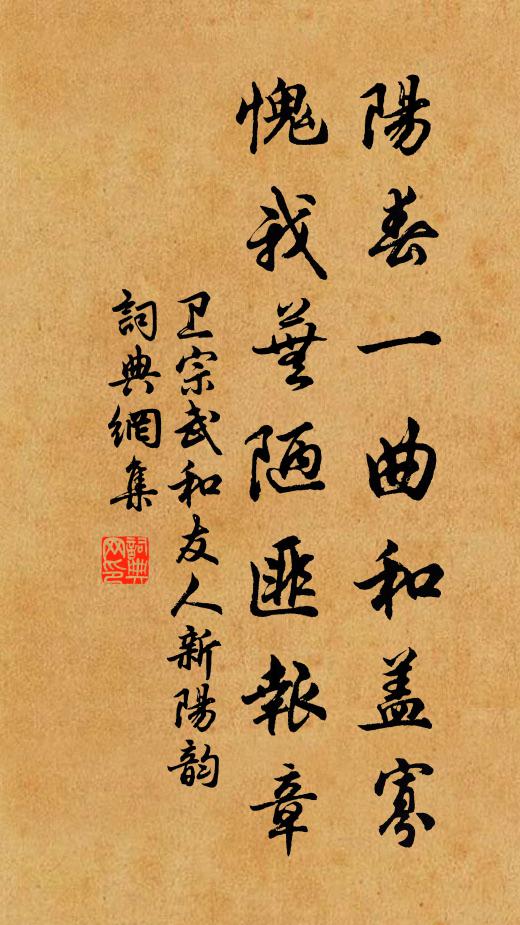 陽春一曲和盖寡
愧我蕪陋匪報章
卫宗武和友人新陽韵
詞典網集
詞典網印